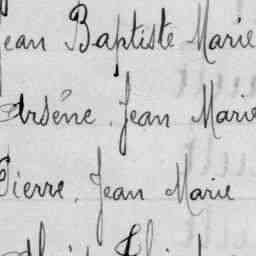 Jean Baptiste Marie
Arsène, Jean Marie
Pierre, Jean Marie